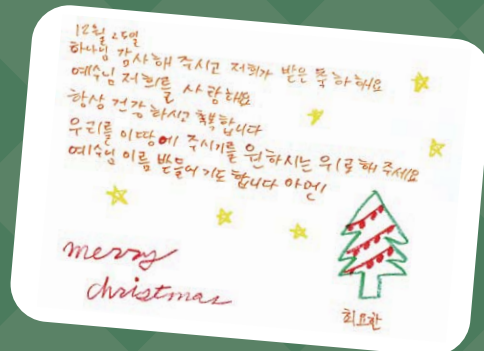 12월 25일
하나님 감사해 주시고 저희가 받은 복 하해요
예수님 저희를 사랑해요
항상 건강하시고 축복합니다
우리를 이땅에 주시기를 원하시는 위로해 주세요
예수님 이름 받들어 기도합니다 아멘!
merry
christmas
최요한